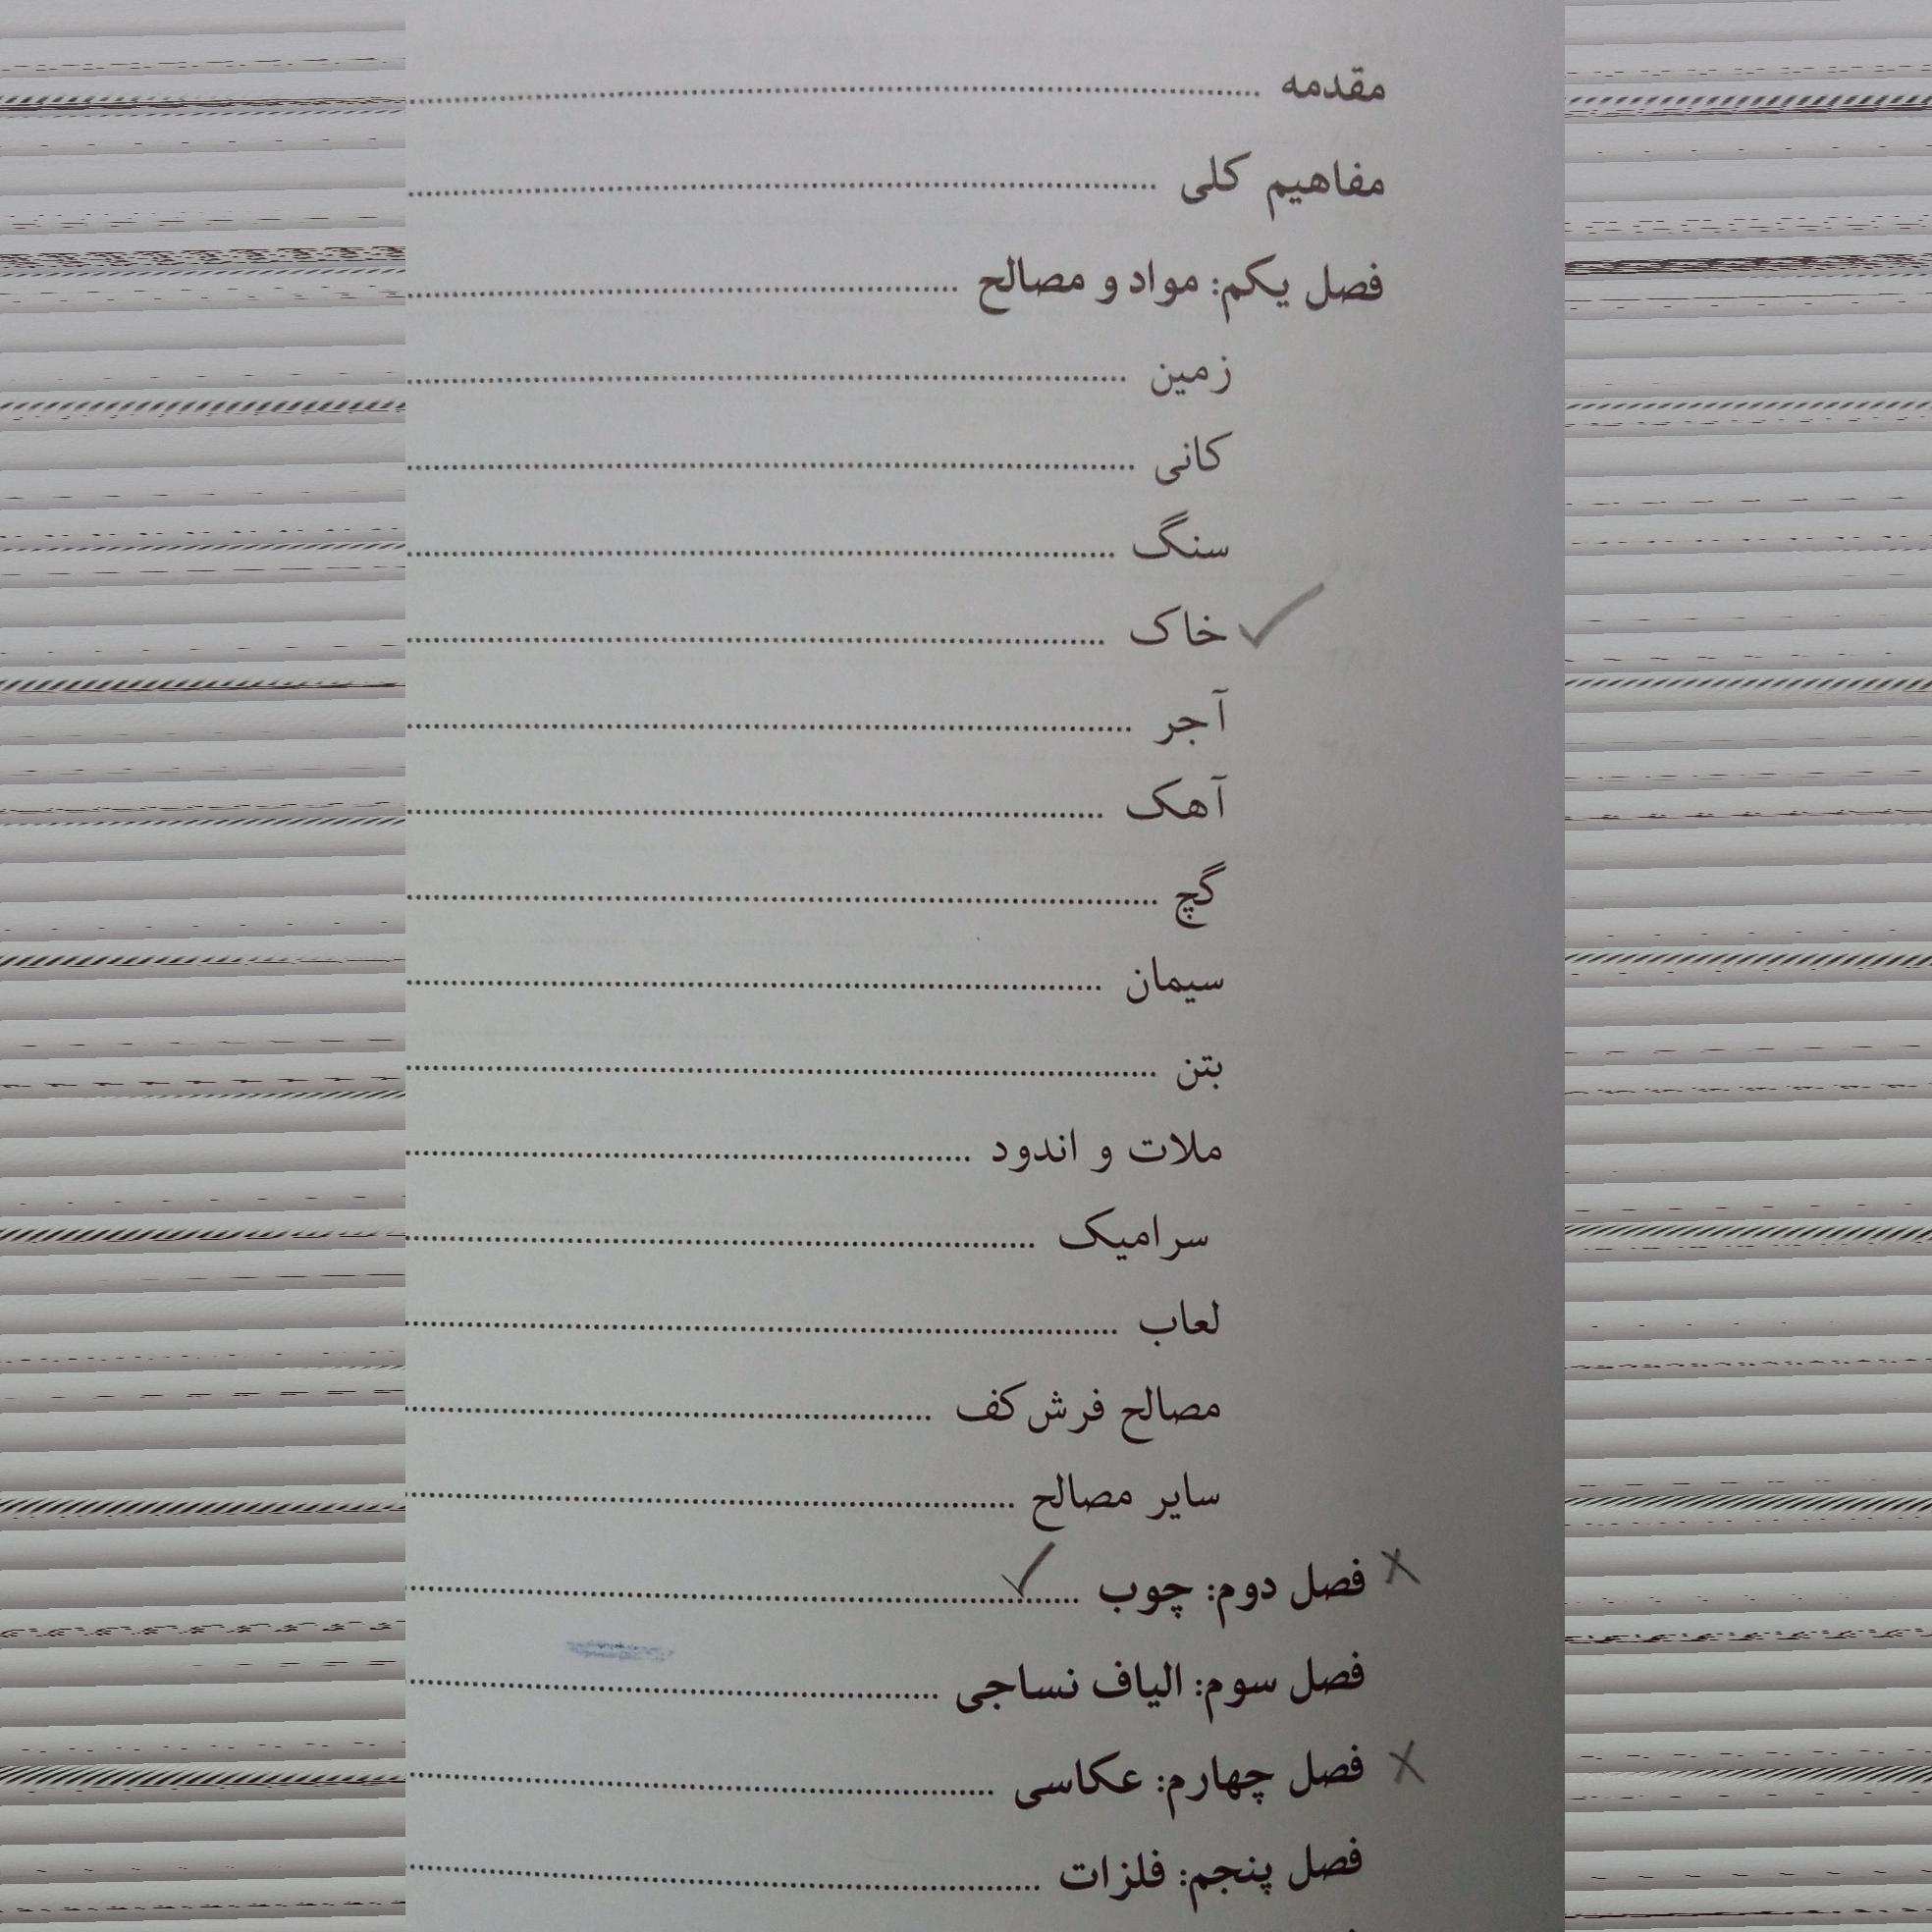 مقدمه
مفاهیم کلی
فصل یکم: مواد و مصالح
زمین
کانی
سنگ
خاک
آجر
آهک
گچ
سیمان
بتن
ملات و اندود
سرامیک
لعاب
مصالح فرش کف
سایر مصالح
فصل دوم: چوب
فصل سوم: الیاف نساجی
فصل چهارم: عکاسی
فصل پنجم: فلزات